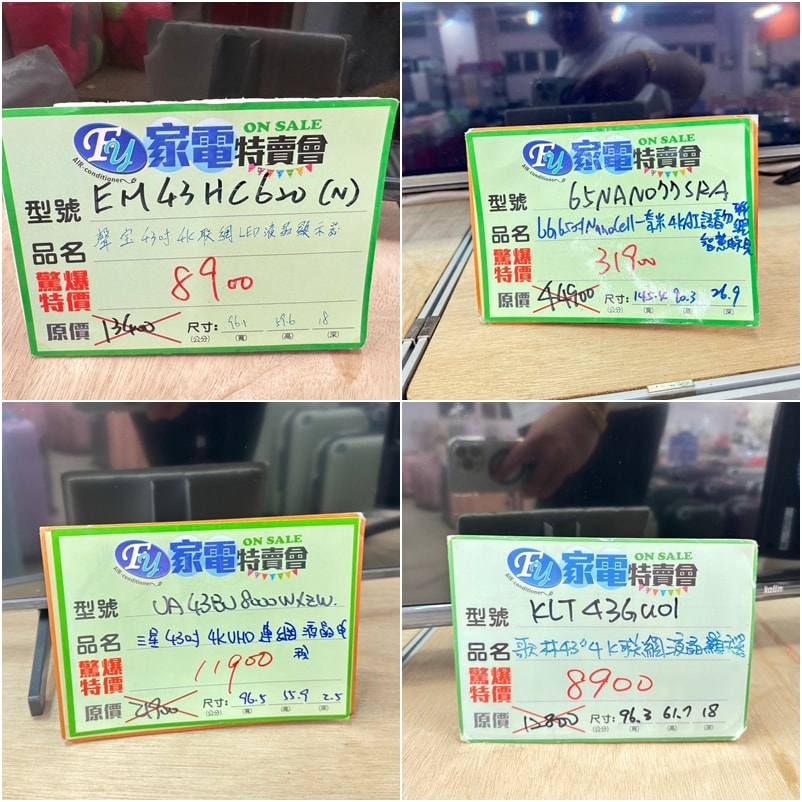 FY 家電特賣會 ON SALE
AIR conditioner
型號 EM43HC620(N)
品名 聲寶43吋4K联網LED液晶顯示器
驚爆特價 8900
原價 13400 尺寸:(公分) 96.1(寬) 59.6(高) 18(深)
FY 家電特賣會 ON SALE
AIR conditioner
型號 65NANO77SRA
品名 65吋NanoCell一奈米4KAI語音物聯網智慧電視
驚爆特價 31900
原價 44900 尺寸:(公分) 145.4(寬) 90.3(高) 26.9(深)
FY 家電特賣會 ON SALE
AIR conditioner
型號 UA43BU8000WXZW.
品名 三星43吋4KUHD連網液晶電視
驚爆特價 11900
原價 21900 尺寸:(公分) 96.5(寬) 55.9(高) 2.5(深)
FY 家電特賣會 ON SALE
AIR conditioner
型號 KLT43GU01
品名 歌林43"4K联網液晶顯示器
驚爆特價 8900
原價 12800 尺寸:(公分) 96.3(寬) 61.7(高) 18(深)
kolin